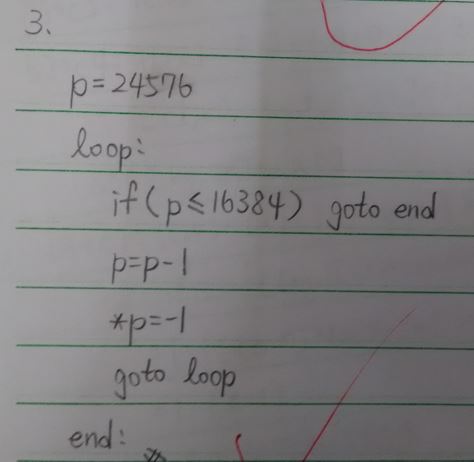 3.
p=24576
loop:
if(p≤16384) goto end
p=p-1
*p=-1
goto loop
end: